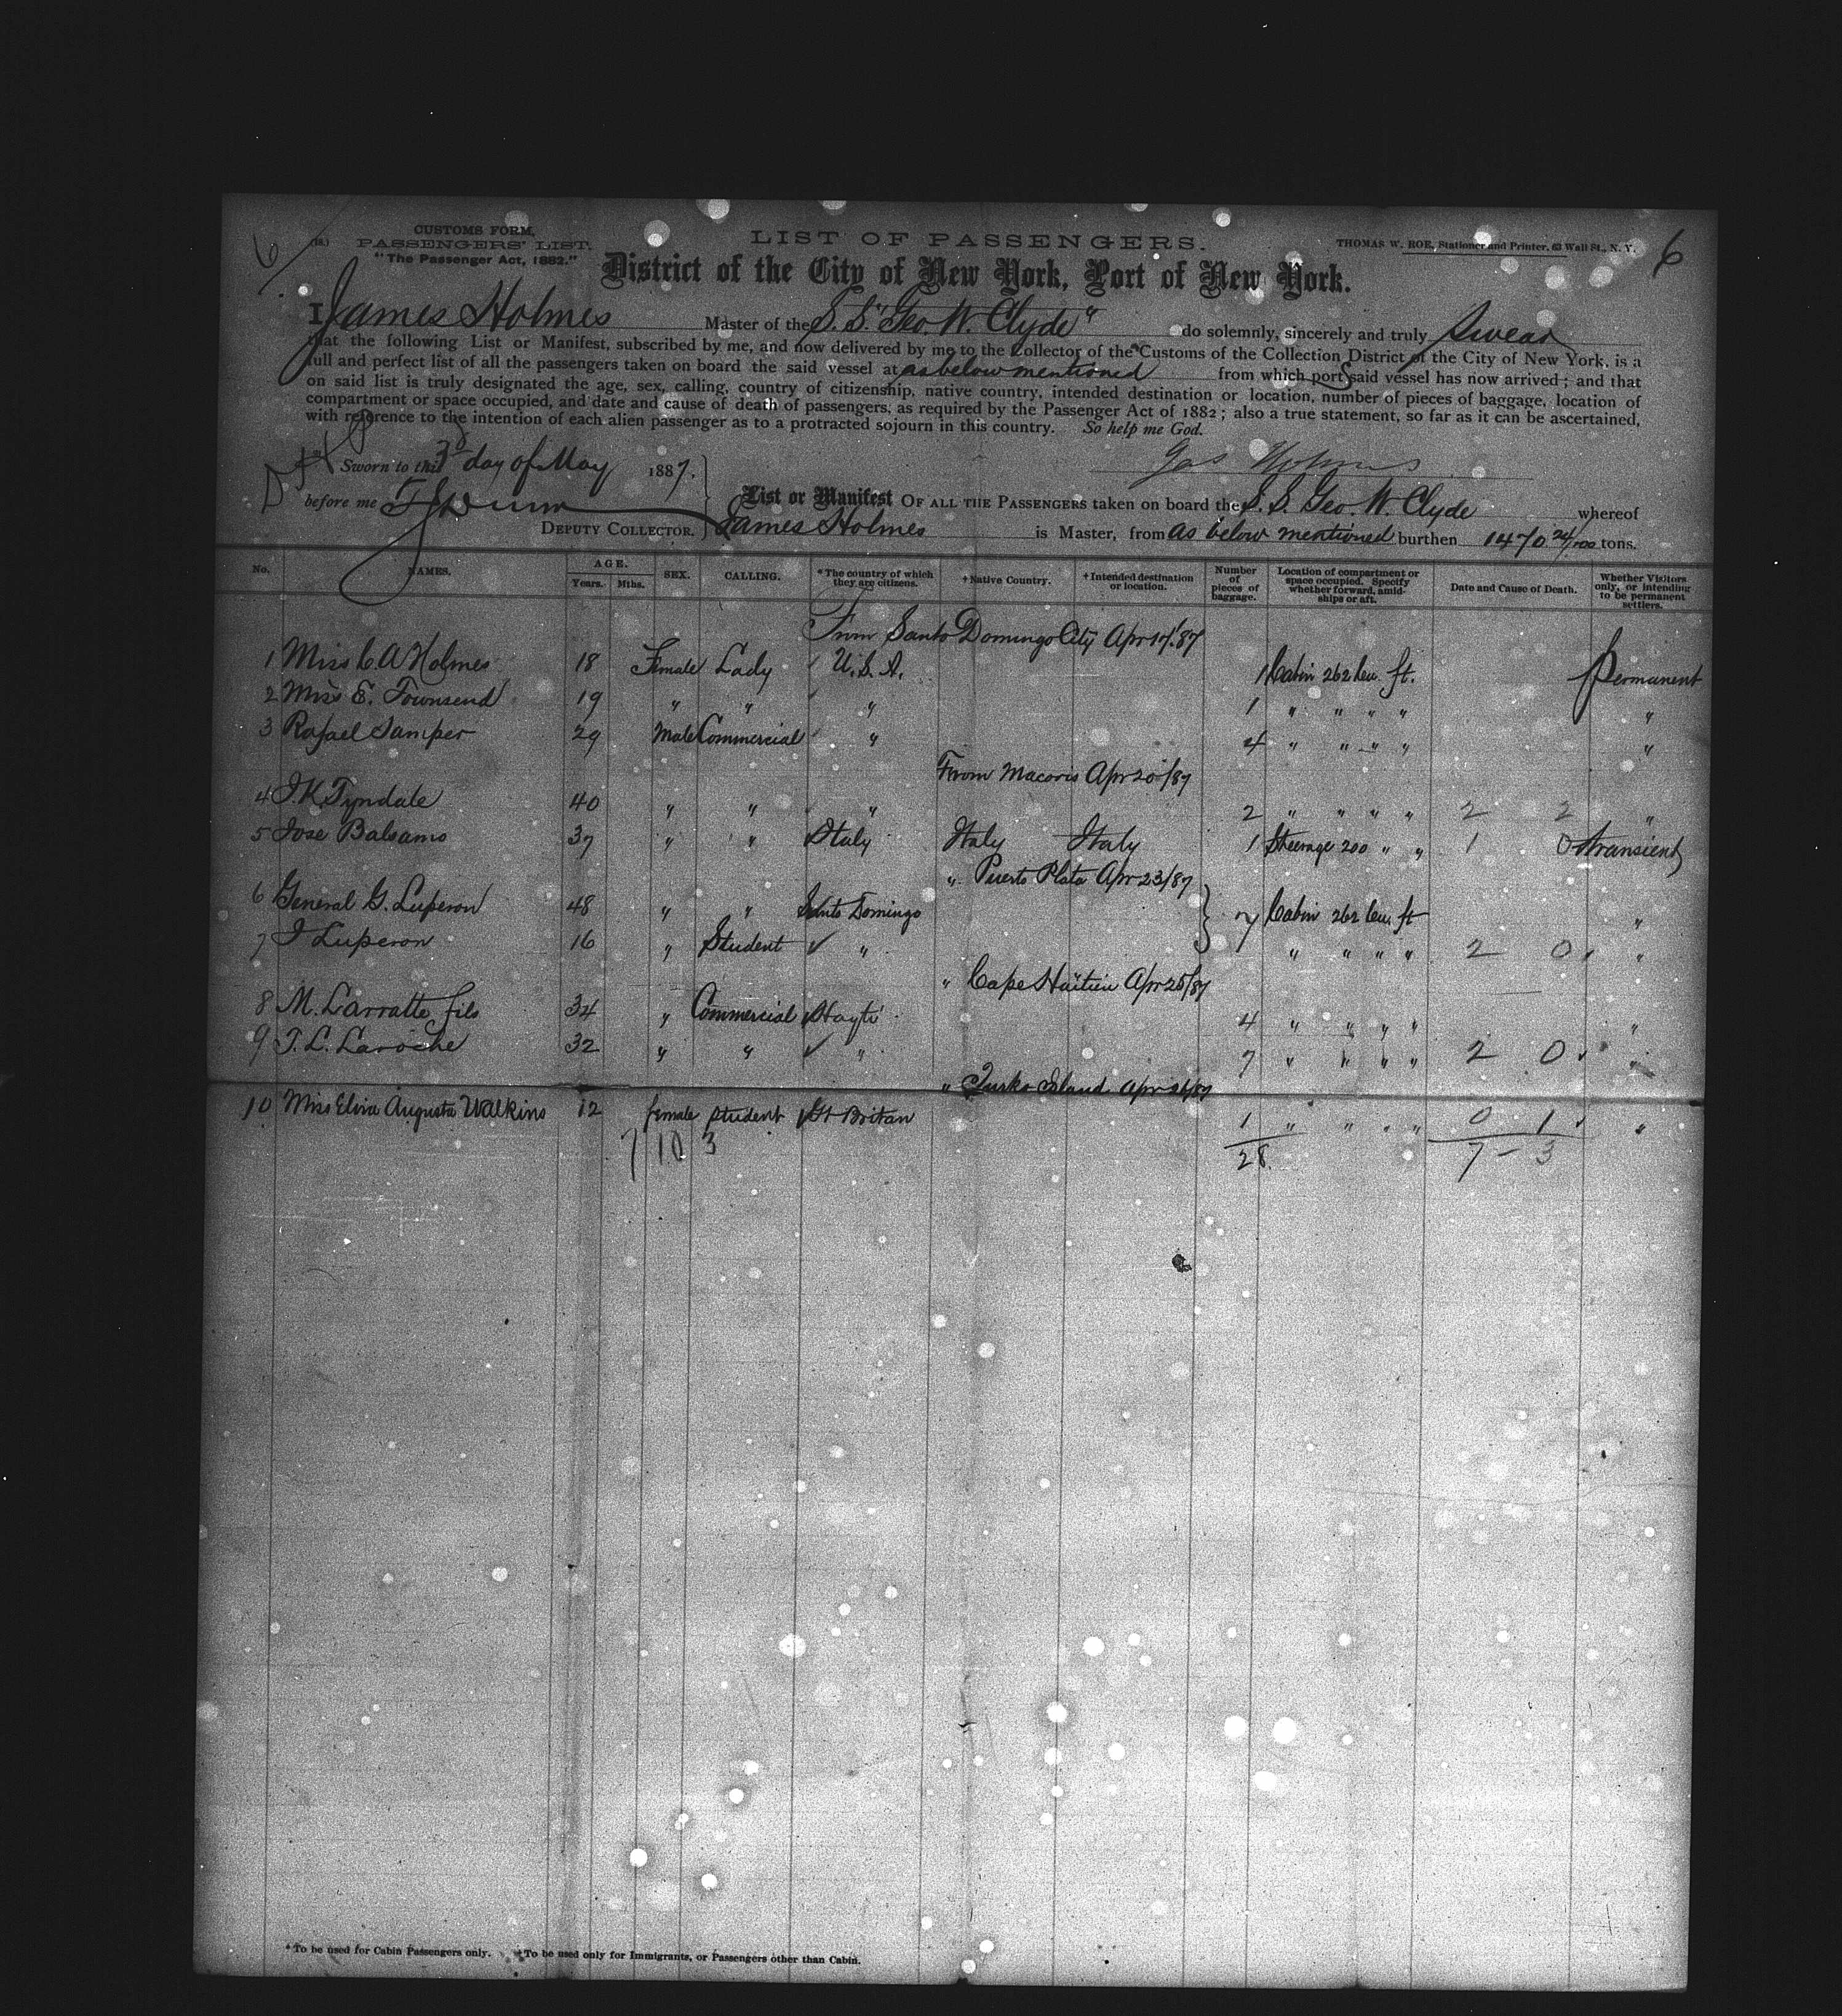 6
6
(18.)
CUSTOMS FORM.
PASSENGERS' LIST.
"The Passenger Act, 1882."
LIST OF PASSENGERS.
THOMAS W. ROE, Stationer and Printer, 63 Wall St., N. Y.
District of the City of New York, Port of New York.
I James Holmes Master of the S. S. "Geo. W. Clyde" do solemnly, sincerely and truly Swear
that the following List or Manifest, subscribed by me, and now delivered by me to the Collector of the Customs of the Collection District of the City of New York, is a
full and perfect list of all the passengers taken on board the said vessel at as below mentioned from which port said vessel has now arrived; and that
on said list is truly designated the age, sex, calling, country of citizenship, native country, intended destination or location, number of pieces of baggage, location of
compartment or space occupied, and date and cause of death of passengers, as required by the Passenger Act of 1882; also a true statement, so far as it can be ascertained,
with reference to the intention of each alien passenger as to a protracted sojourn in this country. So help me God.
Jas Holmes
Sworn to this 3d day of May 1887.
before me
DEPUTY COLLECTOR.
List or Manifest OF ALL THE PASSENGERS taken on board the S. S. Geo. W. Clyde whereof
James Holmes is Master, from as below mentioned burthen 1470 24/100 tons.
No. NAMES. AGE. Years. Mths. SEX. CALLING. *The country of which they are citizens. †Native Country. †Intended destination or location. Number of pieces of baggage. Location of compartment or space occupied. Specify whether forward, amidships or aft. Date and Cause of Death. Whether Visitors only, or intending to be permanent settlers.
From Santo Domingo City Apr 17/87
1 Miss C. A Holmes 18 Female Lady U.S.A. 1 Cabin 262 Cu. ft. Permanent
2 Miss E. Townsend 19 " " " 1 " " " " "
3 Rafael Samper 29 Male Commercial " 4 " " " " "
From Macoris Apr 20/87
4 J. K. Tyndale 40 " " " 2 " " " " 2 2 "
5 Jose Balsamo 37 " " Italy Italy Italy 1 Steerage 200 " " 1 0 transient
" Puerto Plata Apr 23/87
6 General G. Luperon 48 " " Santo Domingo 7 Cabin 262 Cu. ft "
7 J Luperon 16 " Student " " " " " 2 0 "
" Cape Haïtien Apr 25/87
8 M. Larratte fils 34 " Commercial Hayti 4 " " " " "
9 T. L. Laroche 32 " " " 7 " " " " 2 0 "
" Turks Island Apr 26/87
10 Miss Elvira Augusta Walkins 12 female student Gt Britan 1 " " " " 0 1 "
7 10 3 28. 7 - 3
*To be used for Cabin Passengers only. †To be used only for Immigrants, or Passengers other than Cabin.